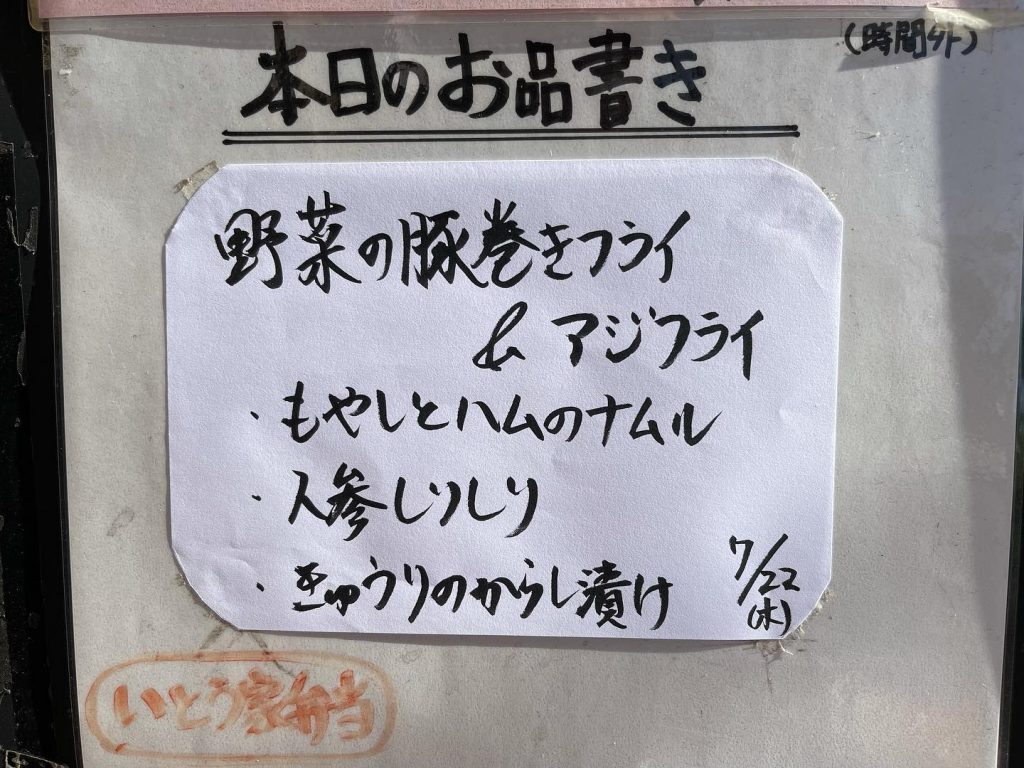 (時間外)
本日のお品書き
野菜の豚巻きフライ
& アジフライ
・もやしとハムのナムル
・人参しりしり
・きゅうりのからし漬け
7/22
(水)
いとう家弁当